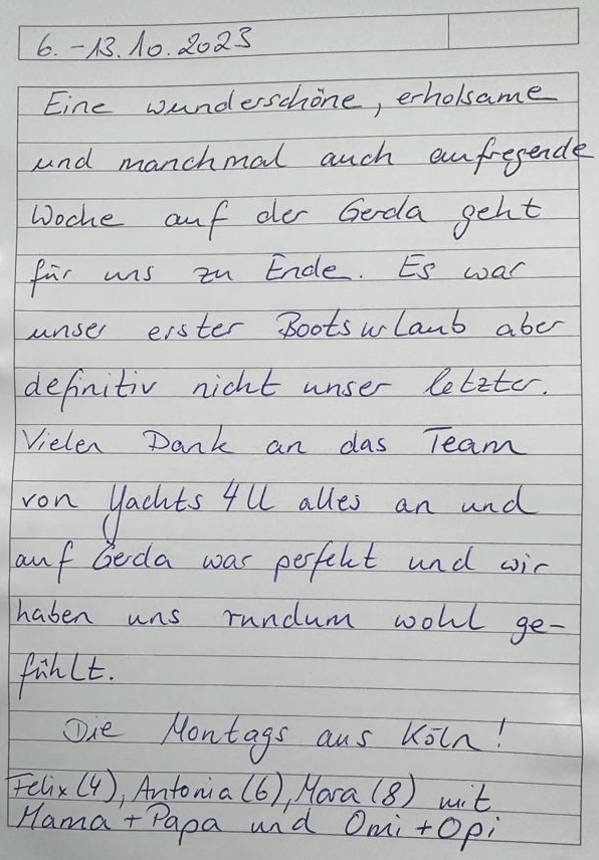 6.-13.10.2023
Eine wunderschöne, erholsame
und manchmal auch aufregende
Woche auf der Gerda geht
für uns zu Ende. Es war
unser erster Bootsurlaub aber
definitiv nicht unser letzter.
Vielen Dank an das Team
von Yachts 4U alles an und
auf Gerda war perfekt und wir
haben uns rundum wohl ge-
fühlt.
Die Montags aus Köln!
Felix (4), Antonia (6), Mara (8) mit
Mama + Papa und Omi + Opi